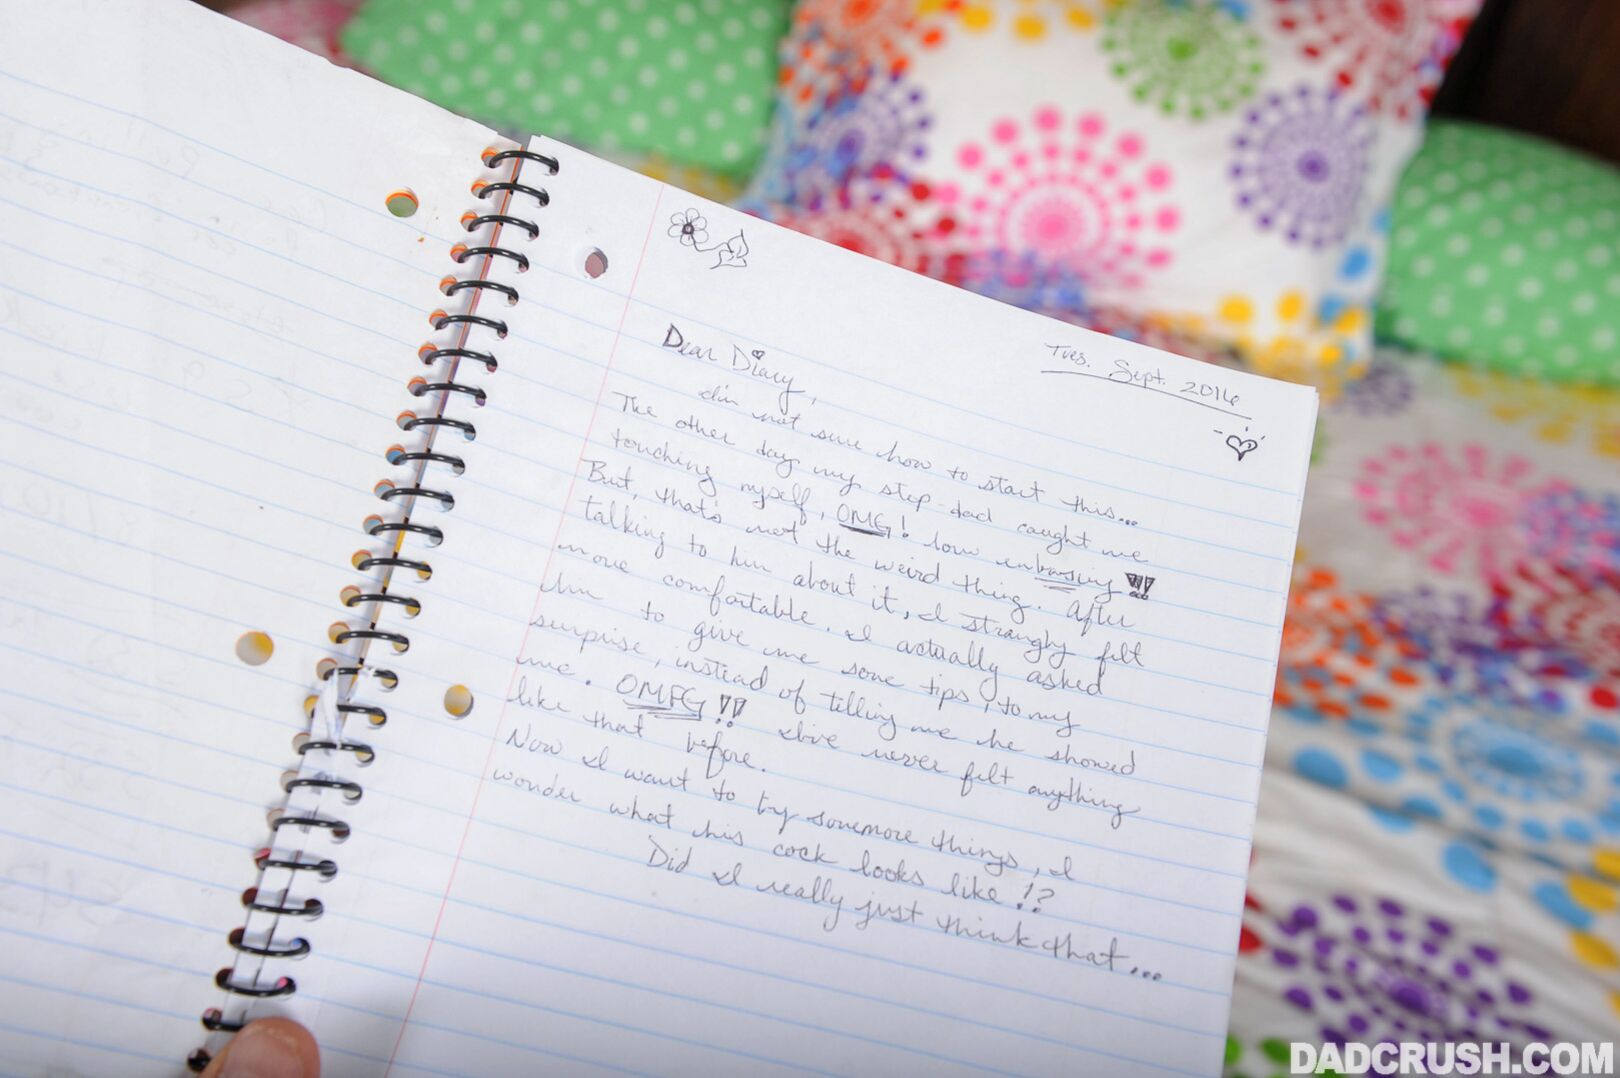 Tues. Sept. 2016
Dear Diary,
I'm not sure how to start this...
The other day my step-dad caught me
touching myself, OMG! how enbarrsing!!!
But, that's not the weird thing. After
talking to him about it, I strangly felt
more comfortable. I actually asked
him to give me some tips, to my
surprise, instead of telling me he showed
me. OMFG!! I've never felt anything
like that before.
Now I want to try somemore things, I
wonder what his cock looks like!?
Did I really just think that...
DADCRUSH.COM